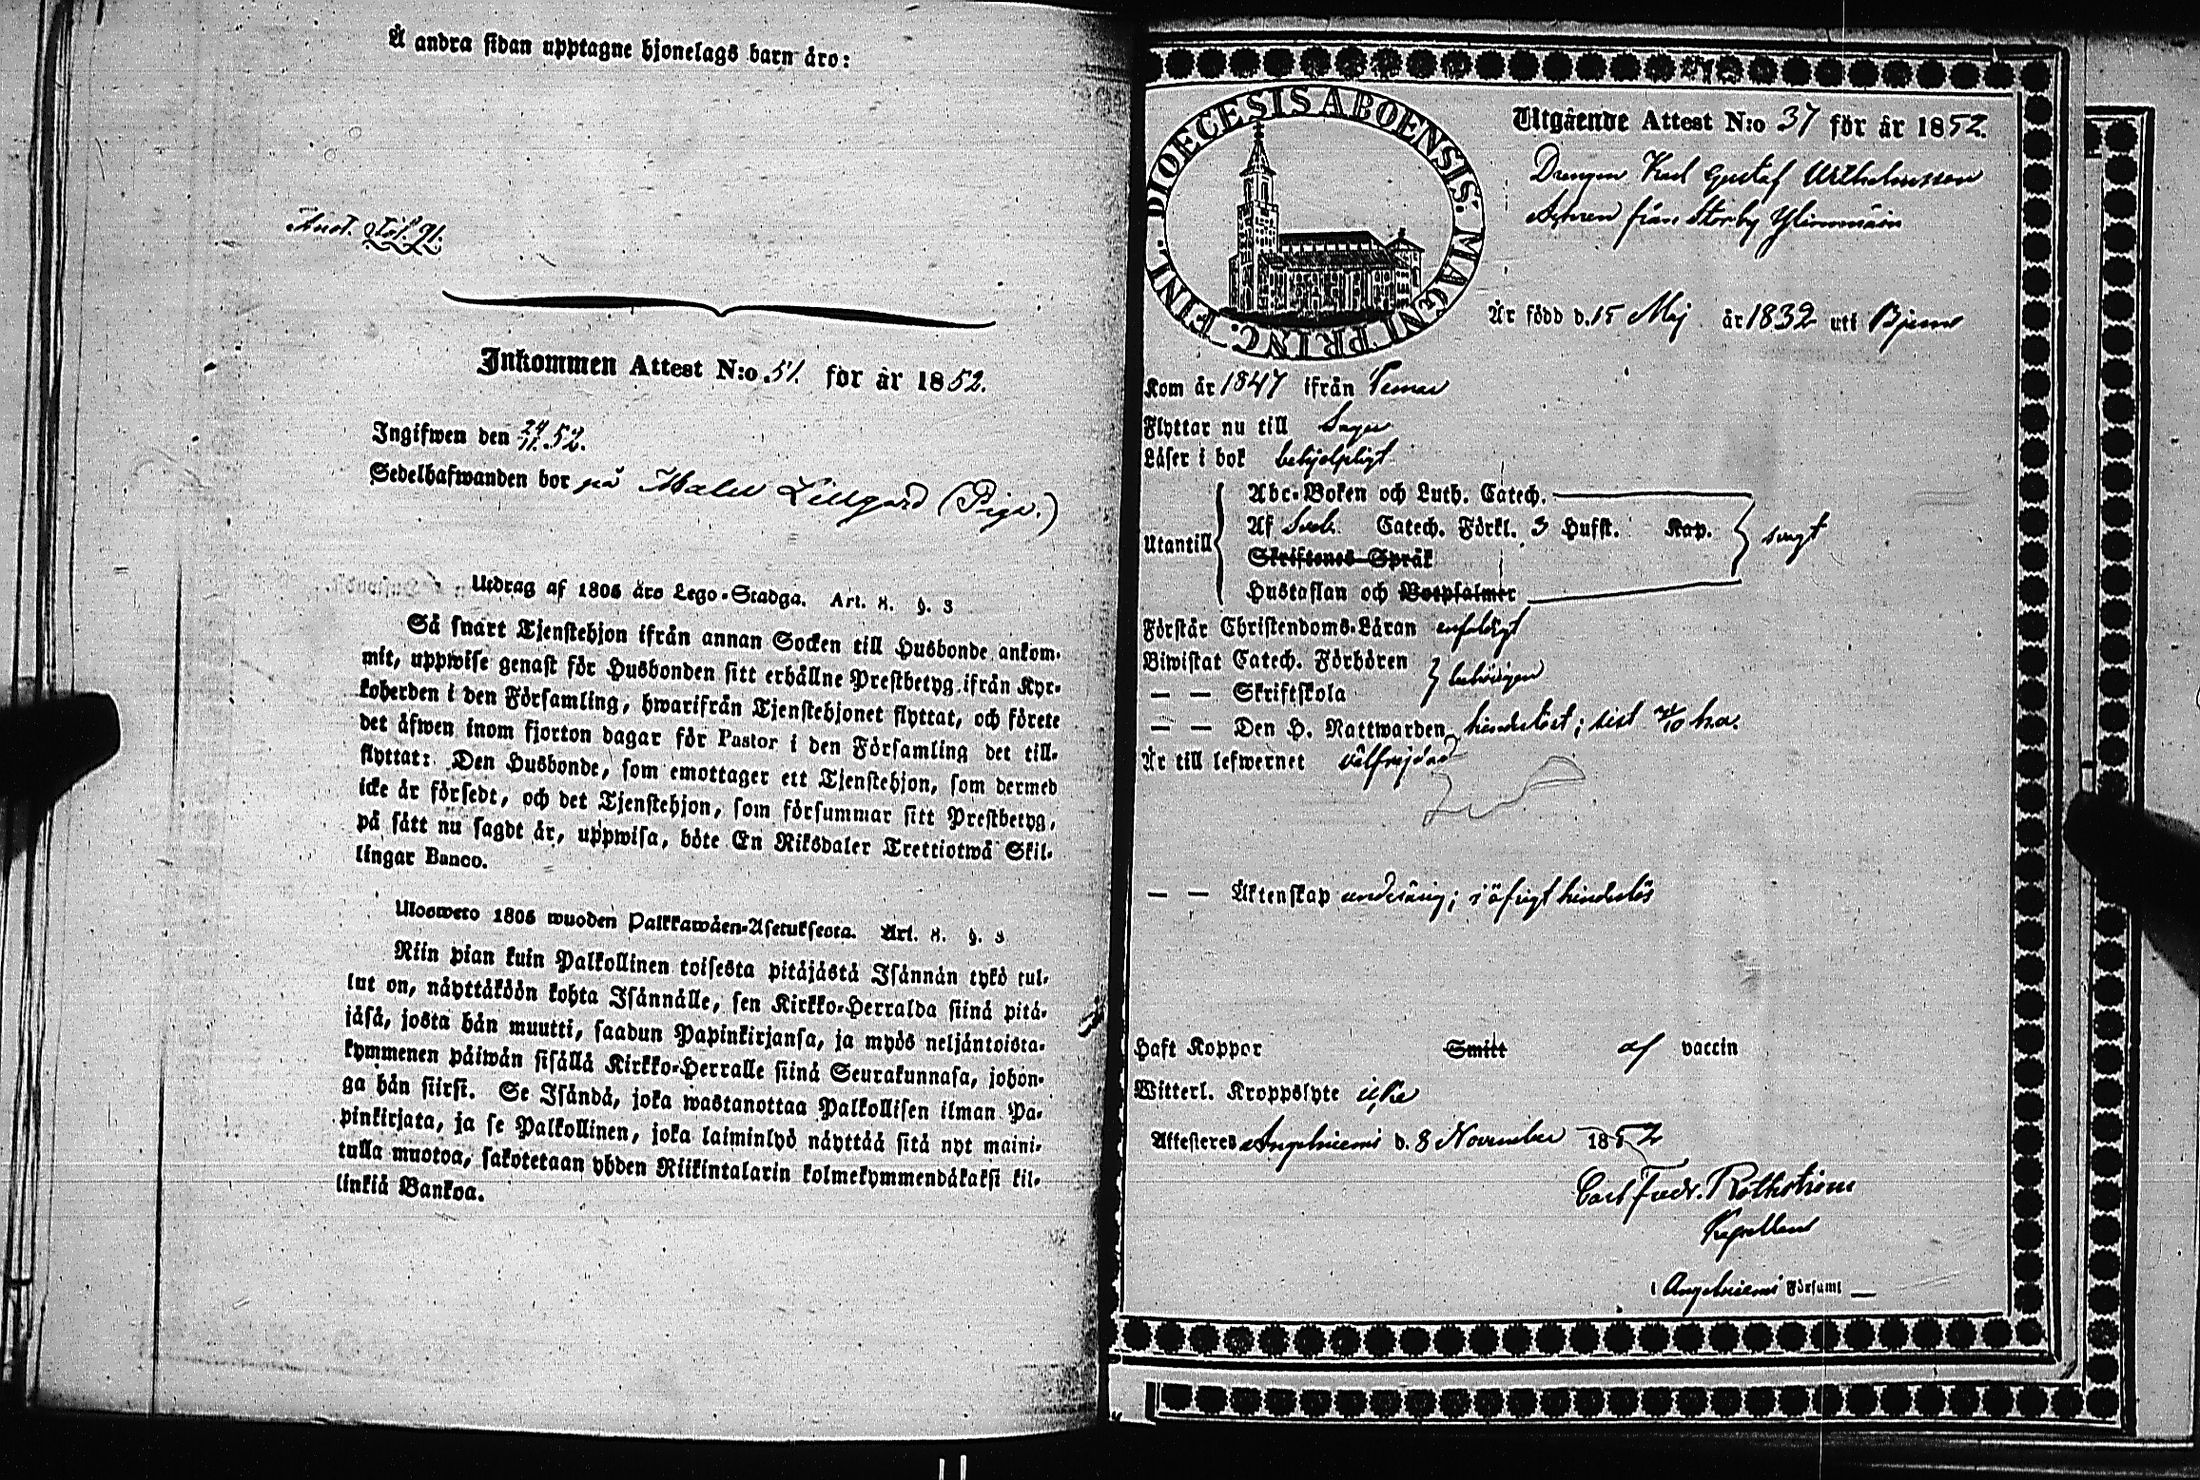 Å andra sidan upptagne hjonelags barn äro:
Inkommen Attest N:o 51. för år 1852.
Ingifwen den 24/11. 52.
Sedelhafwanden bor på Lillgård (Piga.)
Utdrag af 1805 års Lego-Stadga. Art. 8. §. 3
Så snart Tjenstehjon ifrån annan Socken till Husbonde ankom-
mit, uppwise genast för Husbonden sitt erhållne Prestbetyg ifrån Kyr-
koherden i den Församling, hwarifrån Tjenstehjonet flyttat, och förete
det äfwen inom fjorton dagar för Pastor i den Församling det till-
flyttat: Den Husbonde, som emottager ett Tjenstehjon, som dermed
icke är försedt, och det Tjenstehjon, som försummar sitt Prestbetyg,
på sätt nu sagdt är, uppwisa, böte En Riksdaler Trettiotwå Skil-
lingar Banco.
Uloswето 1805 wuoden Palkkawäen-Asetuksesta. Art. 8. §. 3
Niin pian kuin Palkollinen toisesta pitäjästä Isännän tykö tul-
lut on, näyttäköön kohta Isännälle, sen Kirkko-Herralda siinä pitä-
jäsä, josta hän muutti, saadun Papinkirjansa, ja myös neljäntoista-
kymmenen päiwän sisällä Kirkko-Herralle siinä Seurakunnasa, johon-
ga hän siirsi. Se Isändä, joka wastanottaa Palkollisen ilman Pa-
pinkirjata, ja se Palkollinen, joka laiminlyö näyttää sitä nyt maini-
tulla muotoa, sakotetaan yhden Riikintalarin kolmekymmendäkaksi kil-
linkiä Bankoa.
DIOECESIS ABOENSIS. MAGNI PRINC. FINL.
Utgående Attest N:o 37 för år 1852.
Drengen Karl Gustaf Wilhelmsson
från Storby
Är född d. 15 Maj år 1832 uti Bjerno
Kom år 1847 ifrån Pemar
Flyttar nu till Sagu
Läser i bok behjelpligt
Utantill
Abc-Boken och Luth. Catech.
Af Sveb. Catech. Förkl. 3 Hufst. Kap.
Skriftenes Språk
Hustaflan och Botpsalmer
svagt
Förstår Christendoms-Läran enfaldigt
Biwistat Catech. Förhören
— — Skriftskola
behörigen
— — Den H. Nattwarden hinderlöst; sist h.a.
Är till lefwernet välfrejdad
— — Äktenskap underårig; i öfrigt hinderlös
Haft Koppor Smitt af vaccin
Witterl. Kroppslyte icke
Attesteras Angelniemi d. 8 November 1852
Carl Fredr. Rothström
Kapellan
i Angelniemi Församl